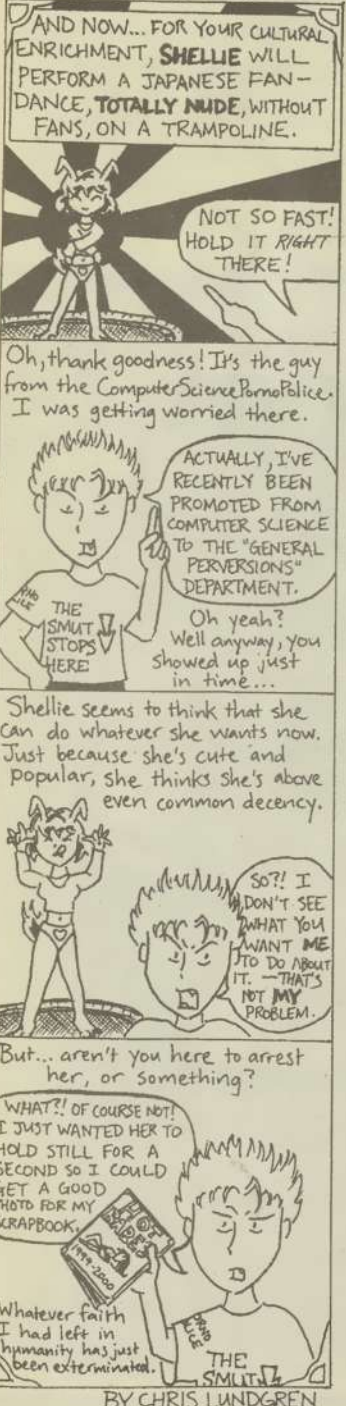 AND NOW... FOR YOUR CULTURAL
ENRICHMENT, SHELLIE WILL
PERFORM A JAPANESE FAN-
DANCE, TOTALLY NUDE, WITHOUT
FANS, ON A TRAMPOLINE.
NOT SO FAST!
HOLD IT RIGHT
THERE!
Oh, thank goodness! It's the guy
from the ComputerSciencePornoPolice.
I was getting worried there.
ACTUALLY, I'VE
RECENTLY BEEN
PROMOTED FROM
COMPUTER SCIENCE
TO THE "GENERAL
PERVERSIONS"
DEPARTMENT.
THE
SMUT
STOPS
HERE
Oh yeah?
Well anyway, you
showed up just
in time...
Shellie seems to think that she
can do whatever she wants now.
Just because she's cute and
popular, she thinks she's above
even common decency.
SO?! I
DON'T SEE
WHAT YOU
WANT ME
TO DO ABOUT
IT. —THAT'S
NOT MY
PROBLEM.
But... aren't you here to arrest
her, or something?
WHAT?! OF COURSE NOT!
I JUST WANTED HER TO
HOLD STILL FOR A
SECOND SO I COULD
GET A GOOD
PHOTO FOR MY
SCRAPBOOK.
HOT
BABES
1999-2000
Whatever faith
I had left in
humanity has just
been exterminated.
THE
SMUT
BY CHRIS LUNDGREN